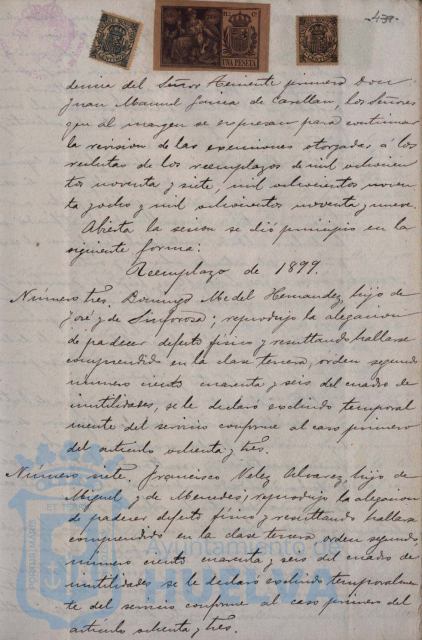 UNA PESETA
dencia del Señor Teniente primero Don
Juan Manuel García de Castellan, los Señores
que al margen se expresan para continuar
la revision de las exenciones otorgadas á los
reclutas de los reemplazos de mil ochocien
tos noventa y siete, mil ochocientos noven
ta y ocho y mil ochocientos noventa y nueve.
Abierta la sesion se dió principio en la
siguiente forma:
Reemplazo de 1899.
Número tres. Domingo Medel Hernandez, hijo de
José y de Sinforosa; reprodujo la alegacion
de padecer defecto físico y resultando hallarse
comprendido en la clase tercera, orden segundo
número ciento cuarenta y seis del cuadro de
inutilidades, se le declaró excluido temporal
mente del servicio conforme al caso primero
del artículo ochenta y tres.
Número siete. Francisco Velez Alvarez, hijo de
Miguel y de Mercedes; reprodujo la alegacion
de padecer defecto físico y resultando hallarse
comprendido en la clase tercera, orden segundo
número ciento cuarenta y seis del cuadro de
inutilidades se le declaró excluido temporalmen
te del servicio conforme al caso primero del
artículo ochenta y tres.
Ayuntamiento de
HUELVA